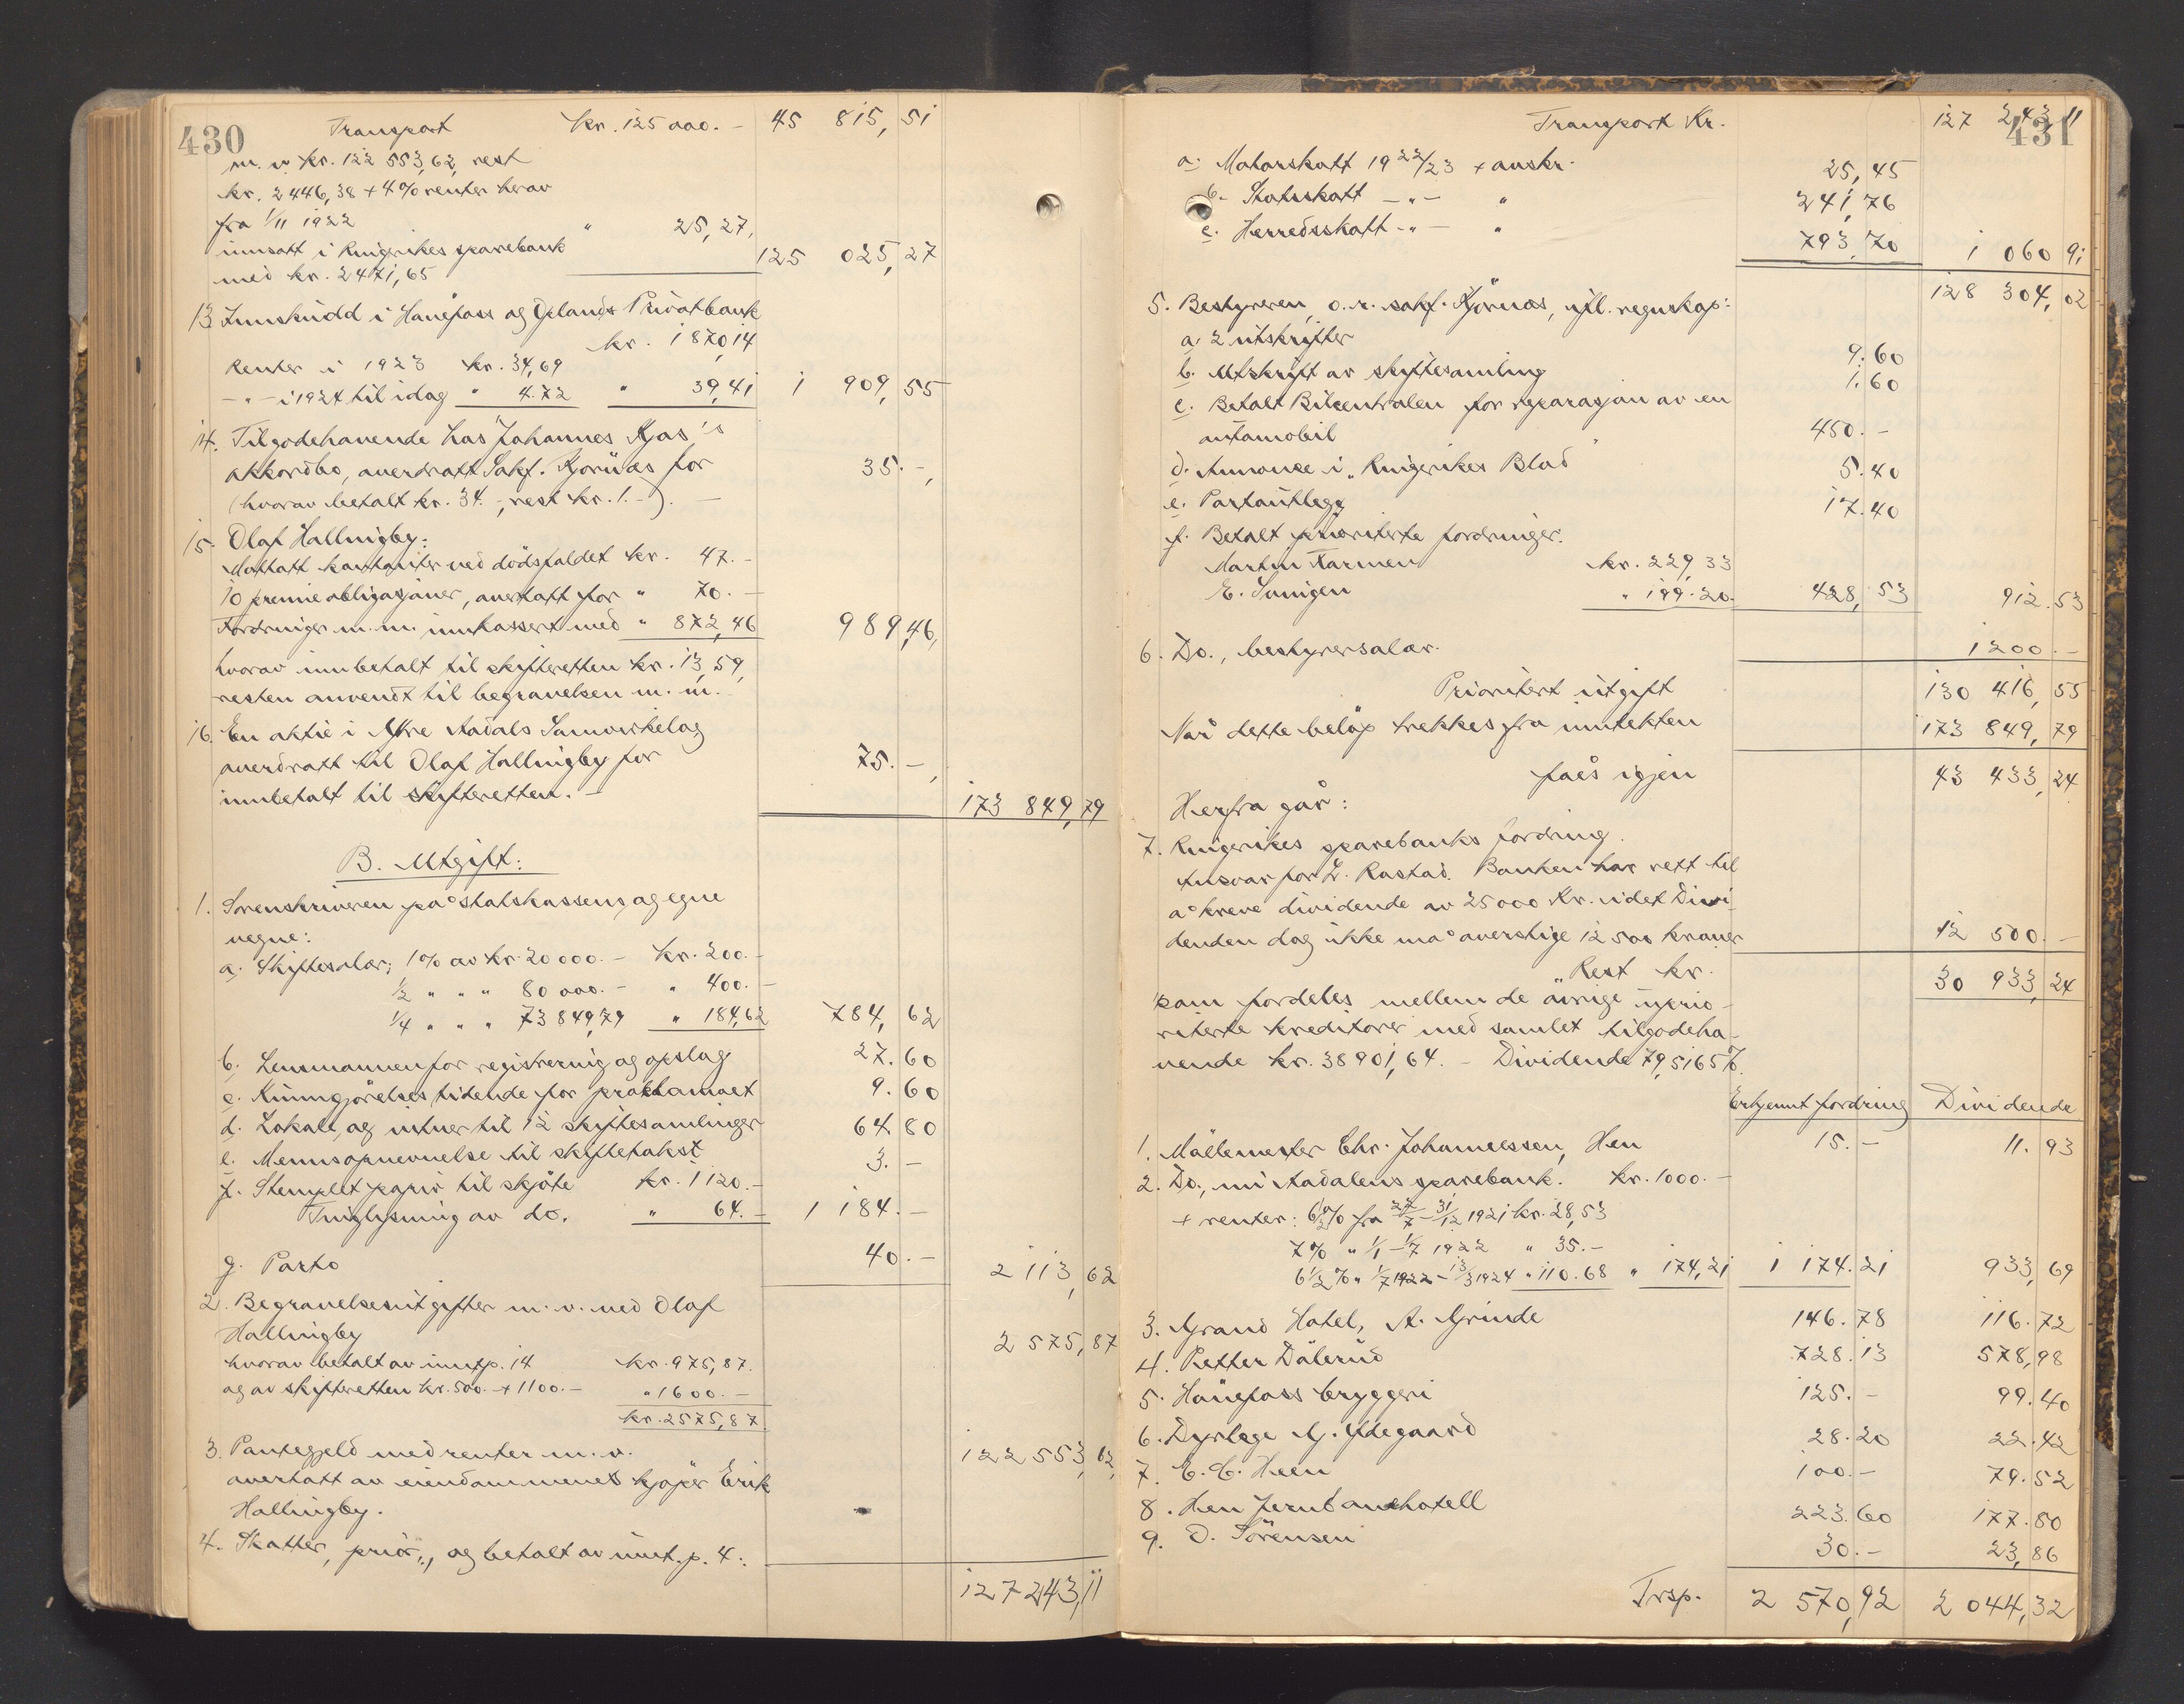 430
Transport kr. 125 000.- 45 815,51
m.v. kr. 122 553,62, rest
kr. 2446,38 + 4% renter herav
fra 1/11 1922 " 25,27,
innsatt i Ringerikes sparebank 125 025,27
med kr. 2471,65
13 Innskudd i Hønefoss og Oplands Privatbank
kr. 1870,14
Renter i 1923 kr. 34,69
-"- i 1924 til idag " 4.72 " 39,41 1 909,55
14. Tilgodehavende hos Johannes
akkordbo, overdratt Sakf. Kjørnæs for 35.-,
(hvorav betalt kr. 34.-, rest kr. 1.-). -
15. Olaf Hallingby:
Mottatt kontanter ved dödsfaldet kr. 47.-
10 premieobligasjoner, overtatt for " 70.-
Fordringer m.m. innkassert med " 872,46 989,46,
hvorav innbetalt til skifteretten kr. 13,59,
resten anvendt til begravelsen m.m.-
16. En aktie i Ytre Aadals Samvirkelag
overdratt til Olaf Hallingby for 75.-,
innbetalt til skifteretten. -
173 849,79
B. Utgift:
1. Sorenskriveren på statskassens og egne
vegne:
a. Skiftesalær; 1% av kr. 20 000.- kr. 200.-
1/2 " " " 80 000.- " 400.-
1/4 " " " 73 849,79 " 184,62 784,62
b. Lensmannen for registrering og opslag 27.60
c. Kunngjörelsestidende for proklamaet 9.60
d. Lokale og vitner til 12 skiftesamlinger 64 80
e. Mennsopnevnelse til skiftetakst 3.-
f. Stemplet papir til skjöte kr. 1120.-
Tinglysning av do. " 64.- 1 184.-
g. Porto 40.- 2 113,62
2. Begravelsesutgifter m.v. ved Olaf
Hallingby 2 575,87
hvorav betalt av inntp. 14 kr. 975,87.
og av skifteretten kr. 500.- + 1100.- " 1600.-
kr. 2575,87.
3. Pantegjeld med renter m.v. 122 553,62,
overtatt av eiendommenes kjøper Erik
Hallingby.
4. Skatter, prior., og betalt av innt. p. 4:
127 243,11
431
Transport Kr. 127 243,11
a. Motorskatt 1922/23 + omskr. 25,45
b. Statsskatt -"- " 241,76
c. Herredsskatt -"- " 793,70 1 060 91
128 304,02
5. Bestyreren, o.r. sakf. Kjörnæs, ifl. regnskap:
a. 2 utskrifter 9.60
b. Utskrift av skiftesamling 1.60
c. Betalt Bilcentralen for reparasjon av en
automobil 450.-
d. Annonce i "Ringerikes Blad" 5.40
e. Portoutlegg 17.40
f. Betalt prioriterte fordringer.
Martin Farmen kr. 229,33
E. " 199.20. 428,53 912.53
6. Do., bestyrersalær. 1200.-
Prioritert utgift 130 416,55
Når dette beløp trekkes fra inntekten 173 849,79
fåes igjen 43 433,24
Herfra går:
7. Ringerikes sparebanks fordring.
Ansvar for L. Rastad. Banken har rett til
å kreve dividende av 25000 Kr. idet Divi-
denden dog ikke må overstige 12 500 kroner 12 500.-
"Rest kr. 30 933,24
som fordeles mellem de øvrige uprio-
riterte kreditorer med samlet tilgodeha-
vende kr. 38901,64. - Dividende 79,5165%.
Erkjennt fordring Dividende
1. Møllemester Chr. Johannessen, Hen 15.- 11.93
2. Do., nu Aadalens sparebank. kr. 1000.-
+ renter: 6 1/2% fra 27/7 - 31/12 1921 kr. 28,53
7% " 1/1 - 1/7 1922 " 35.-
6 1/2% " 1/7 1922 - 13/3 1924 " 110.68 " 174,21 1 174.21 933,69
3. Grand Hotel, A. Grinde 146.78 116.72
4. Petter Dölerud 728.13 578,98
5. Hönefoss bryggeri 125.- 99.40
6. Dyrlege G. Ødegaard 28.20 22.42
7. E. C. Heen 100.- 79.52
8. Hen Jernbanehotell 223.60 177.80
9. O. Sörensen 30.- 23,86
Trsp. 2 570,92 2 044,32